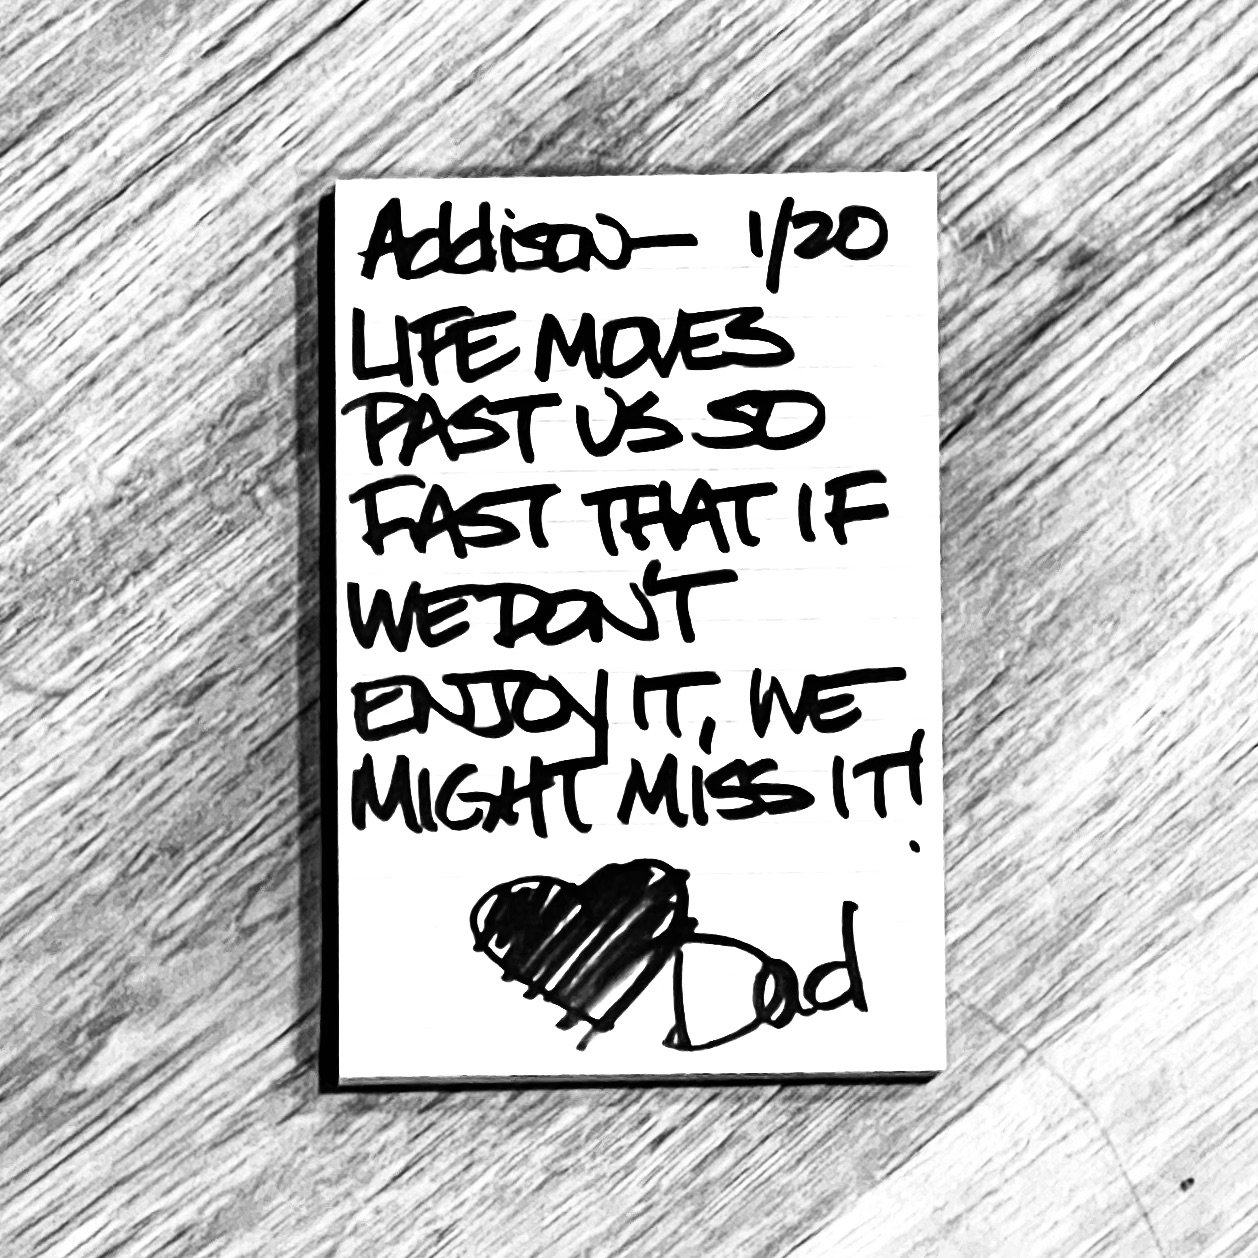 Addison— 1/20
LIFE MOVES
PAST US SO
FAST THAT IF
WE DON'T
ENJOY IT, WE
MIGHT MISS IT!
Dad